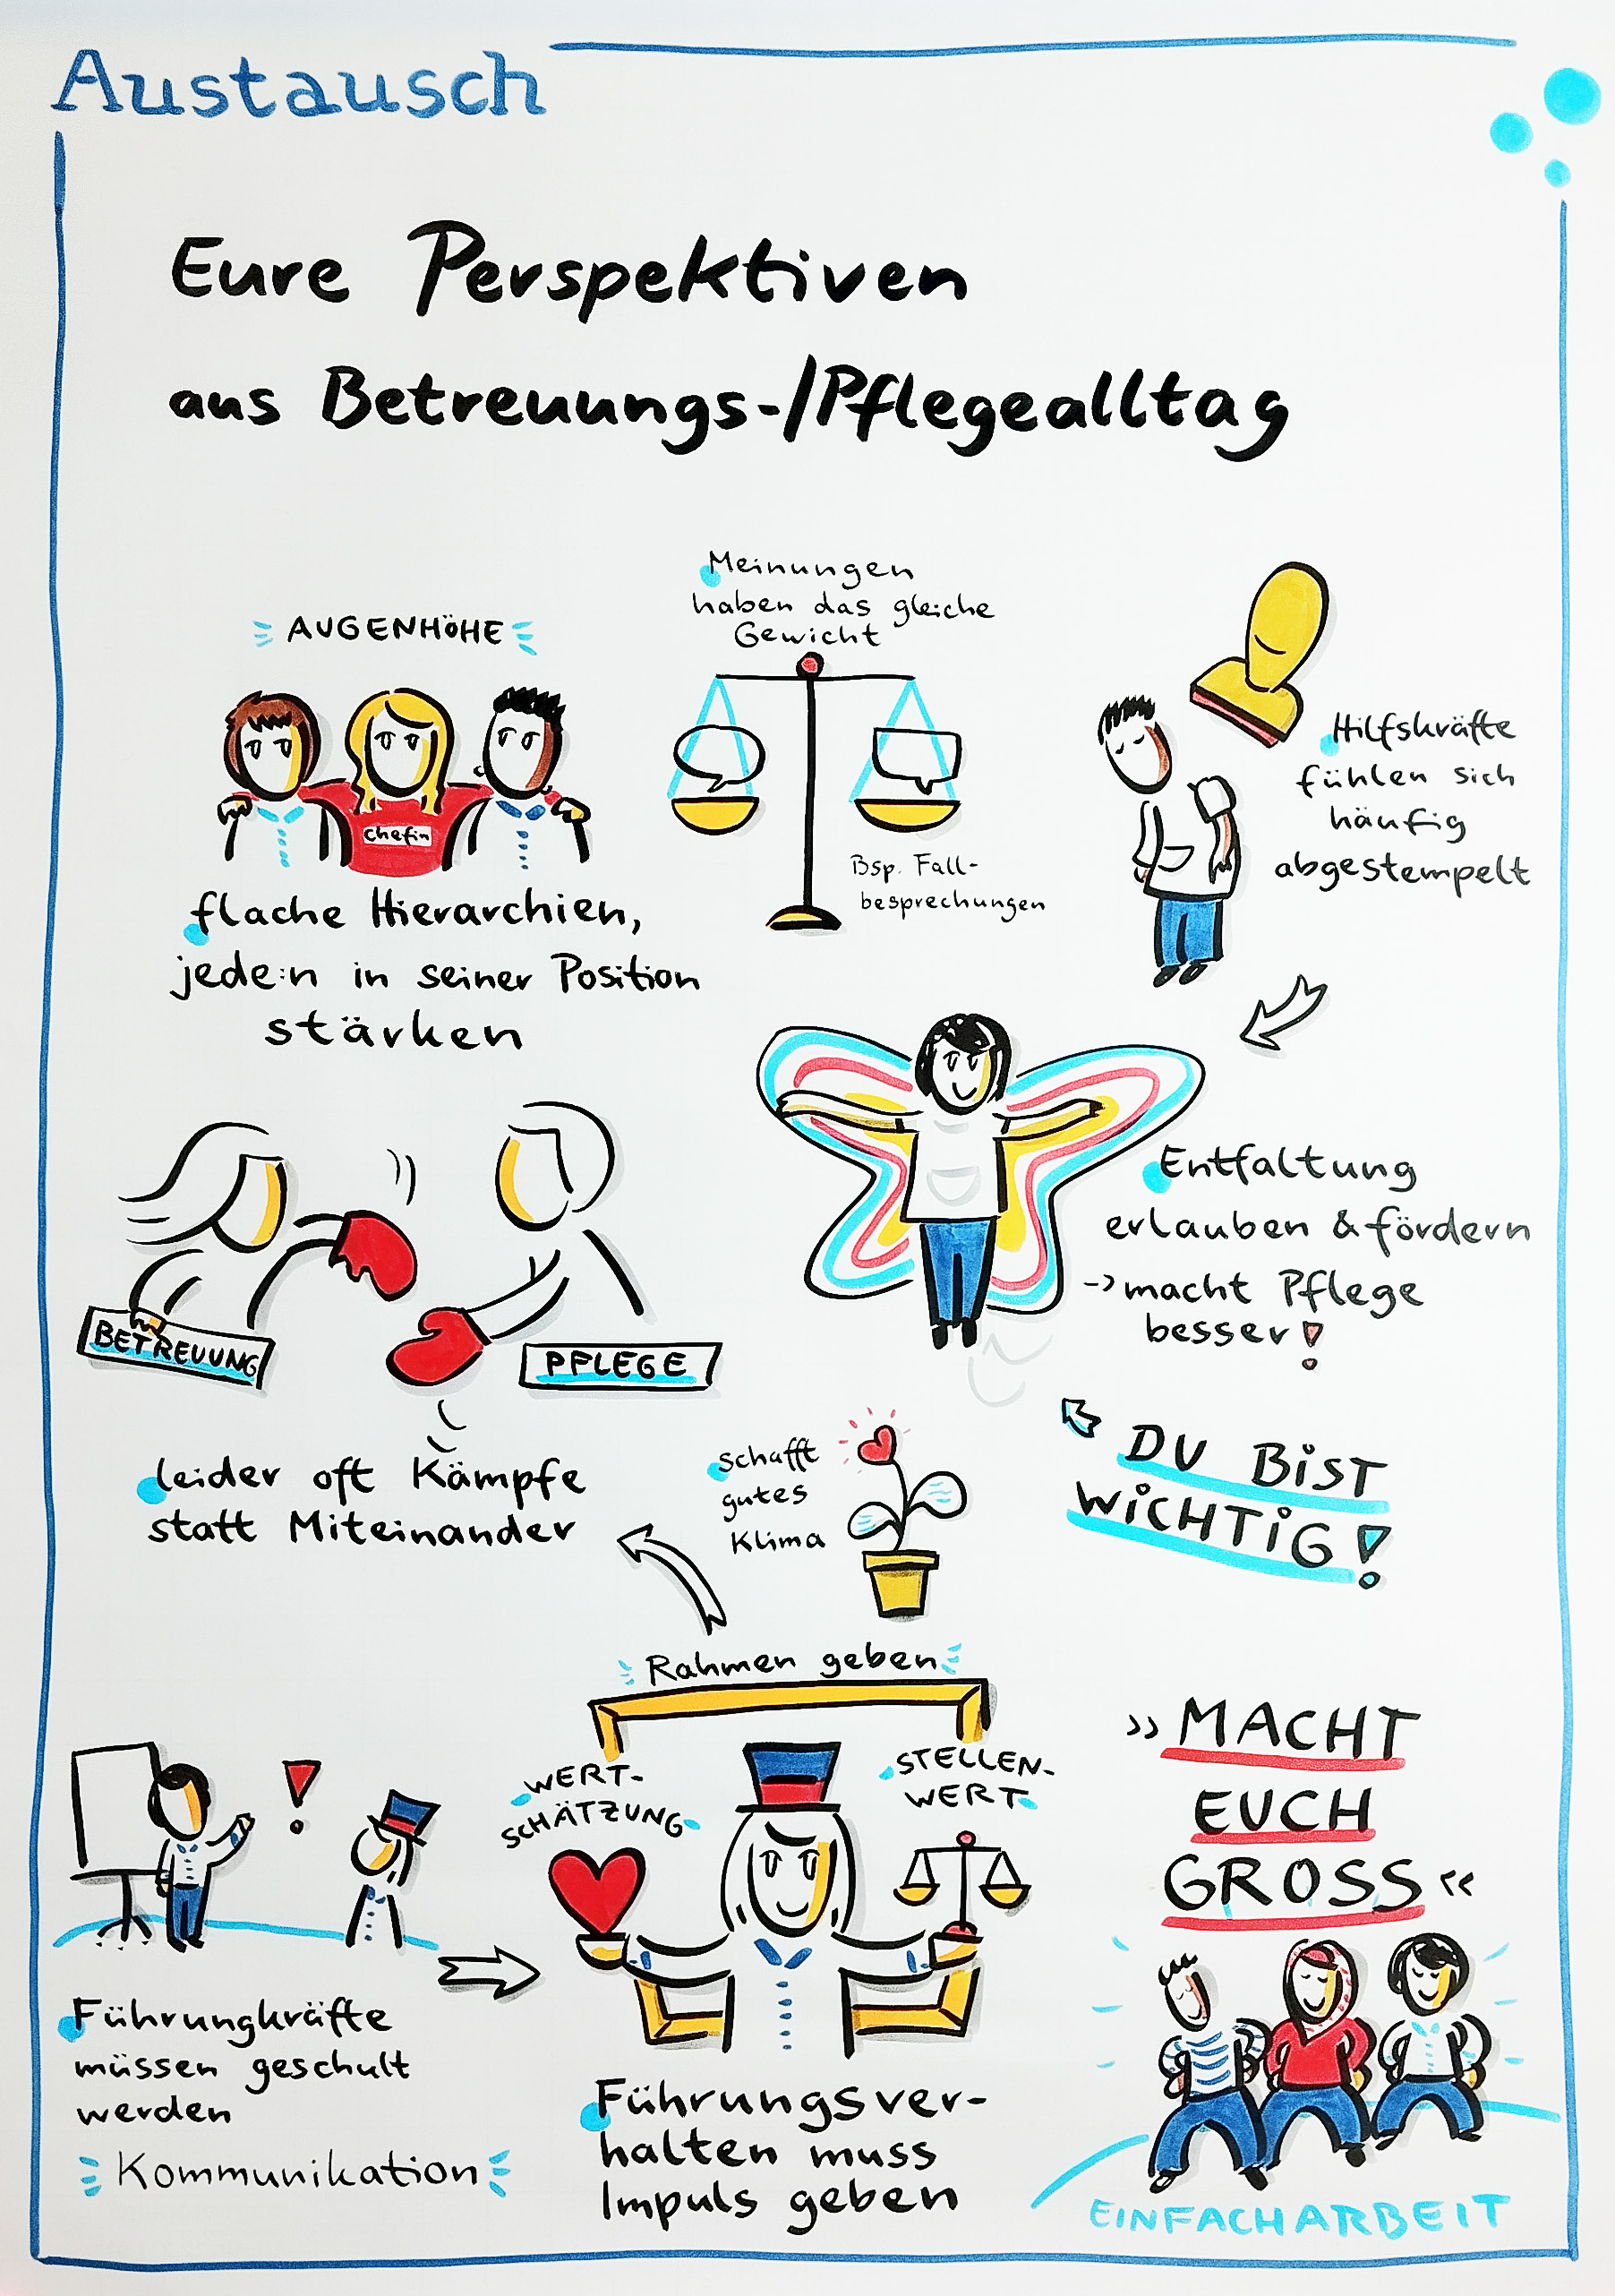 Austausch
Eure Perspektiven
aus Betreuungs-/Pflegealltag
AUGENHÖHE
chefin
flache Hierarchien,
jede:n in seiner Position
stärken
Meinungen
haben das gleiche
Gewicht
Bsp. Fall-
besprechungen
Hilfskräfte
fühlen sich
häufig
abgestempelt
Entfaltung
erlauben & fördern
-> macht Pflege
besser!
DU BIST
WICHTIG!
BETREUUNG
PFLEGE
leider oft Kämpfe
statt Miteinander
schafft
gutes
Klima
Rahmen geben
WERT-
SCHÄTZUNG
STELLEN-
WERT
!
Führungkräfte
müssen geschult
werden
Kommunikation
Führungsver-
halten muss
Impuls geben
»MACHT
EUCH
GROSS«
EINFACHARBEIT